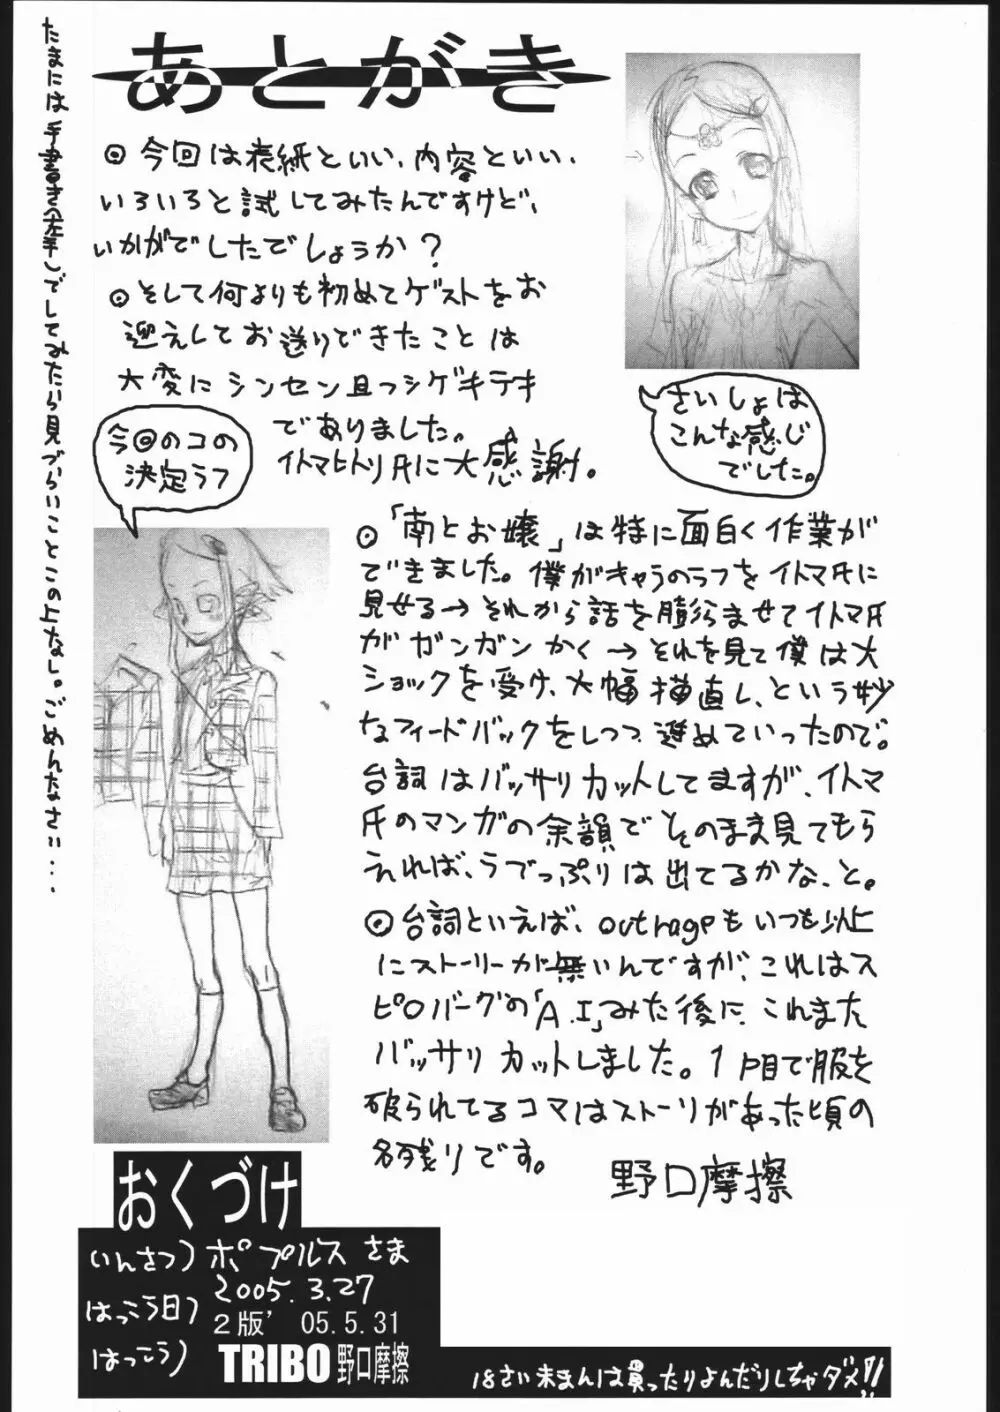 あとがき
たまには手書き(左手)でしてみたら見づらいことこの上なし。ごめんなさい...
◎今回は表紙といい、内容といい、
いろいろと試してみたんですけど、
いかがでしたでしょうか?
◎そして何よりも初めてゲストをお
迎えしてお送りできたことは
大変にシンセン且つシゲキテキ
でありました。
イトマヒトリ氏に大感謝。
さいしょは
こんな感じ
でした。
今回のコの
決定ラフ
◎「南とお嬢」は特に面白く作業が
できました。僕がキャラのラフをイトマ氏に
見せる→それから話を膨らませてイトマ氏
がガンガンかく→それを見て僕は大
ショックを受け、大幅描直し、という妙
なフィードバックをしつつ進めていったので。
台詞はバッサリカットしてますが、イトマ
氏のマンガの余韻でそのまま見てもら
えれば、うでっぷりは出てるかな、と。
◎台詞といえば、outrageもいつも以上
にストーリーが無いんですが、これはス
ピロバーグの「A.I」みた後に、これまた
バッサリカットしました。1P目で服を
破られてるコマはストーリがあった頃の
名残りです。
野口摩擦
おくづけ
いんさつ)ポプルスさま
はっこう日)2005.3.27
2版' 05.5.31
はっこう)TRIBO野口摩擦
18さい未まんは買ったりよんだりしちゃダメ!!